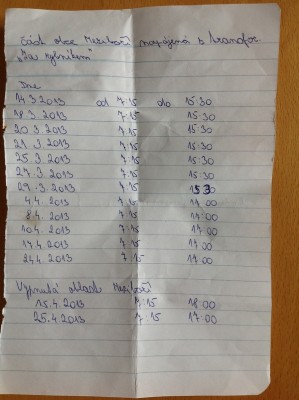 část obce Meziboří napájená z transfor
"Za rybníkem"
Dne
14.3.2013 od 7:15 do 15:30
18.3.2013 7:15 15:30
20.3.2013 7:15 15:30
21.3.2013 7:15 15:30
25.3.2013 7:15 15:30
27.3.2013 7:15 15:30
29.3.2013 7:15 1530
4.4.2013 7:15 17:00
8.4.2013 7:15 17:00
10.4.2013 7:15 17:00
17.4.2013 7:15 17:00
24.4.2013 7:15 17:00
Vypnutá oblast
15.4.2013 7:15 18:00
25.4.2013 7:15 17:00